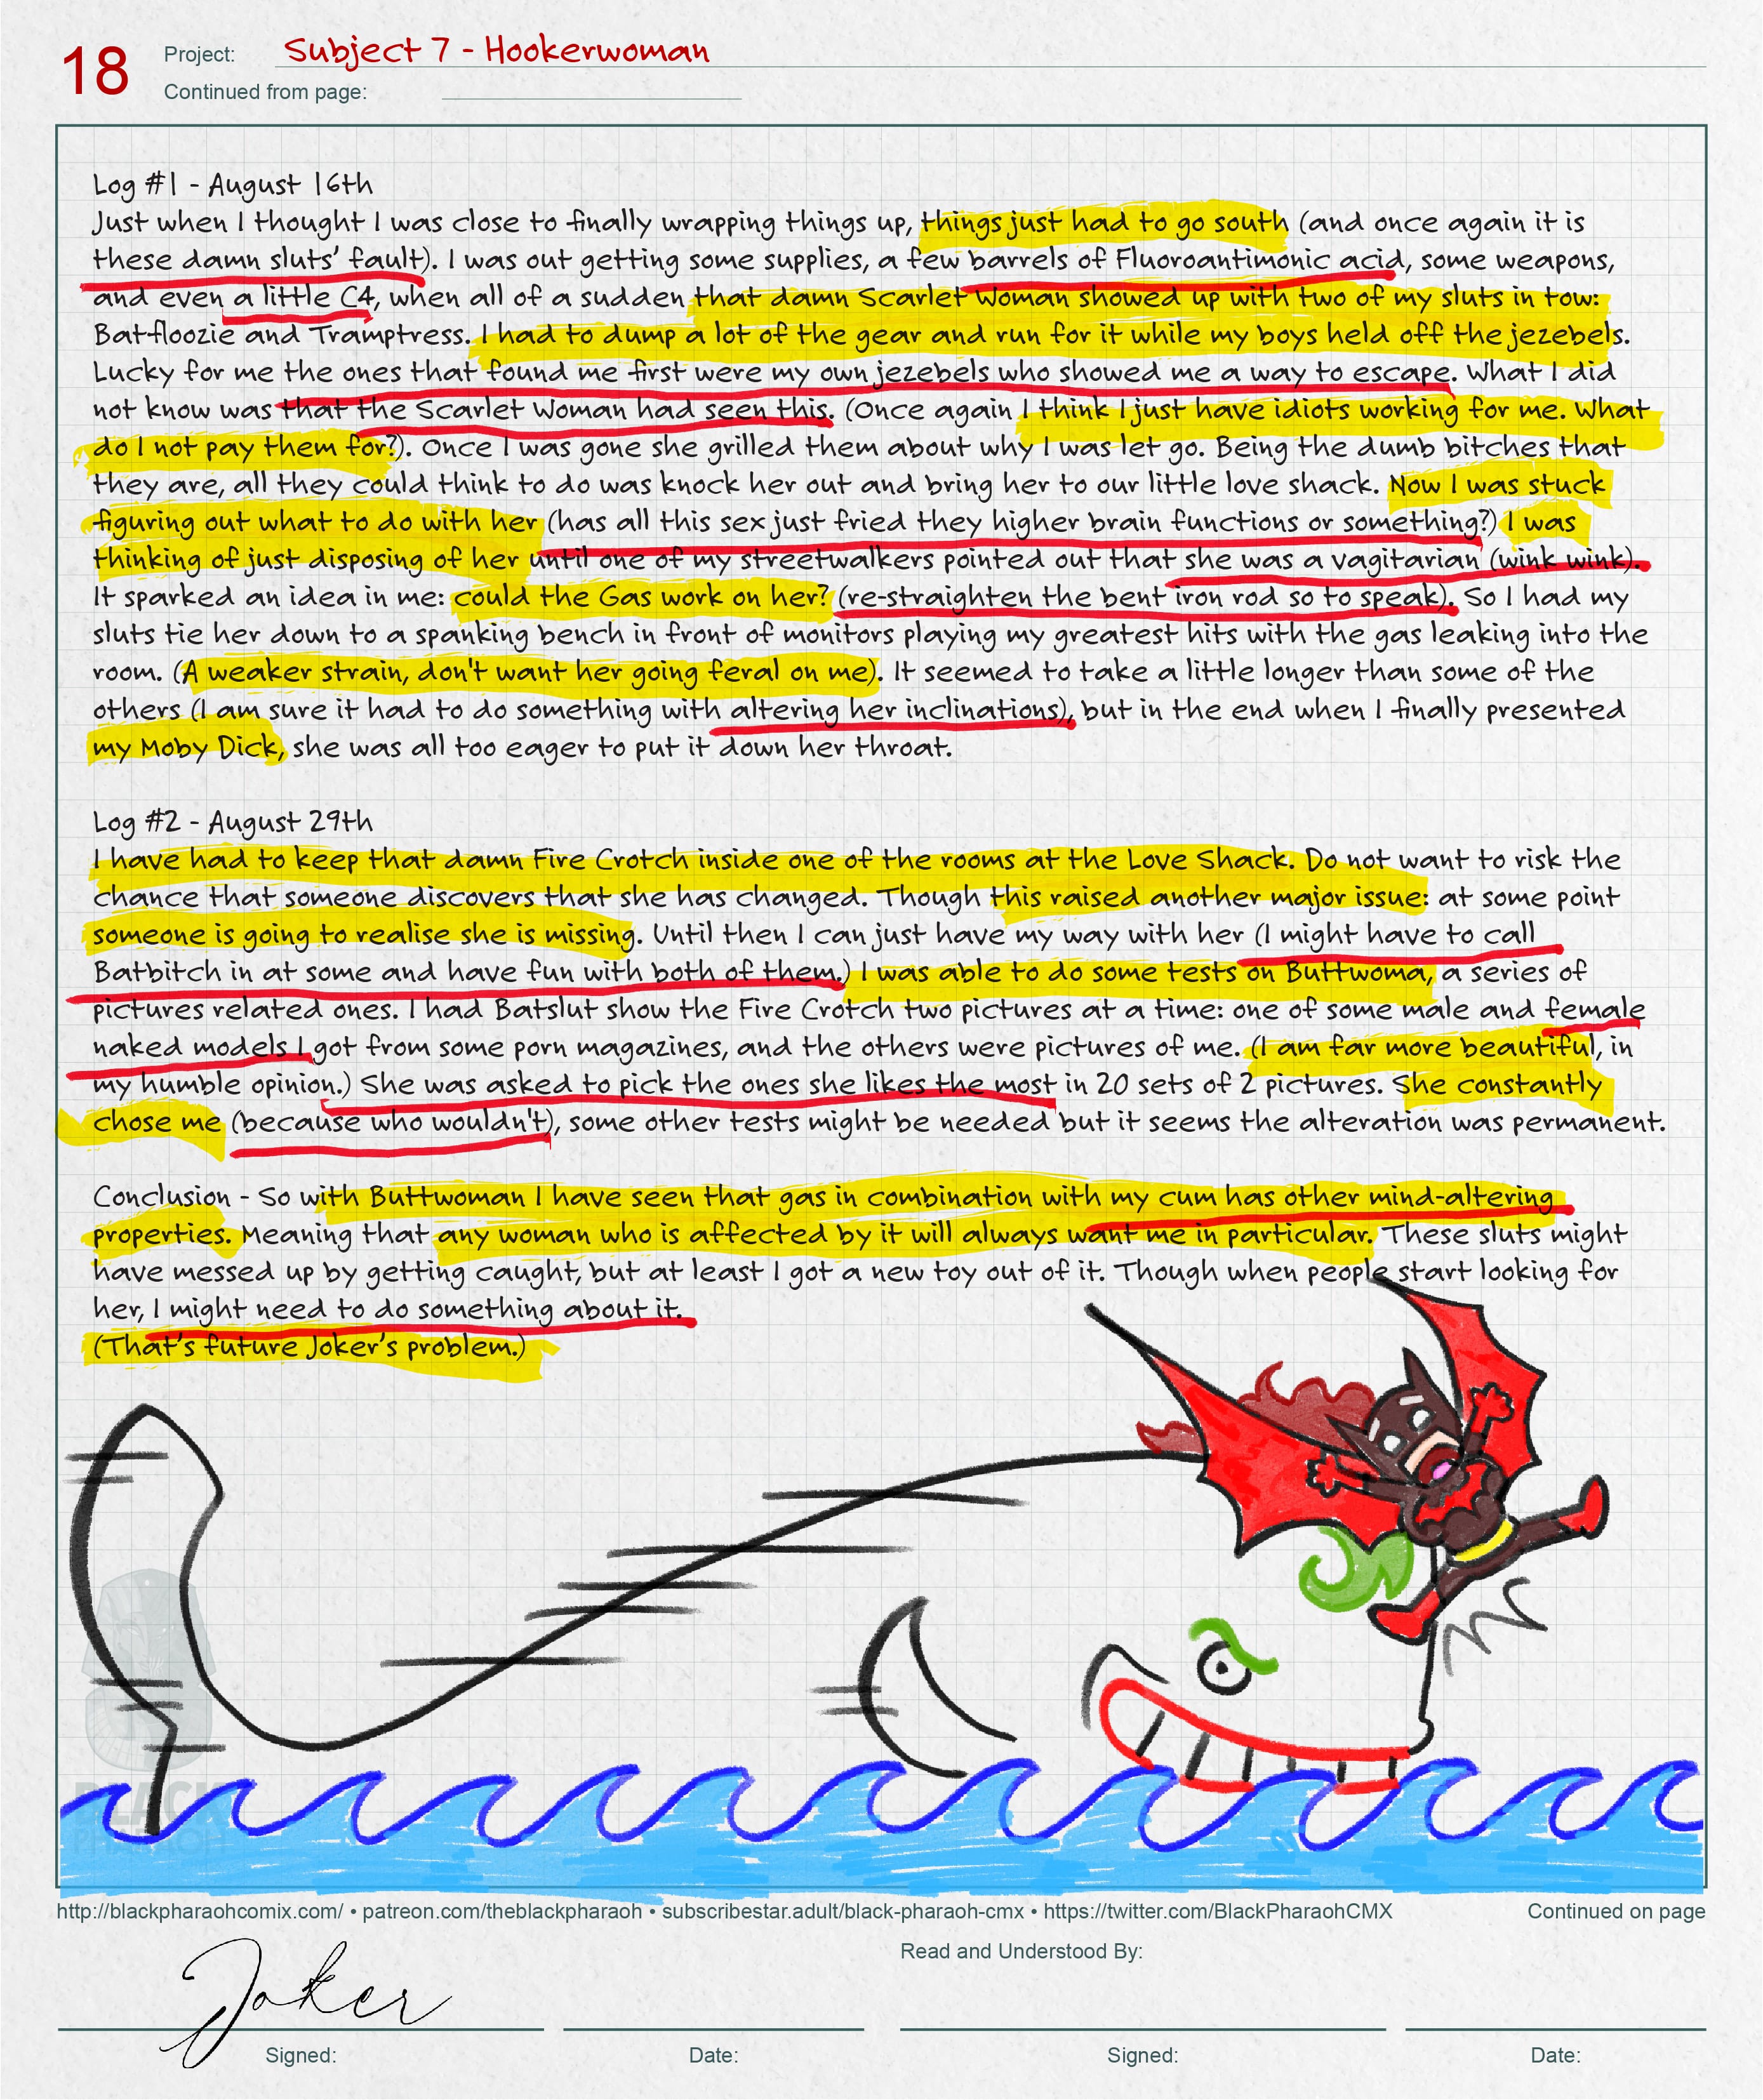 18
Project: Subject 7 - Hookerwoman
Continued from page:
Log #1 - August 16th
Just when I thought I was close to finally wrapping things up, things just had to go south (and once again it is
these damn sluts' fault). I was out getting some supplies, a few barrels of Fluoroantimonic acid, some weapons,
and even a little C4, when all of a sudden that damn Scarlet Woman showed up with two of my sluts in tow:
Batfloozie and Tramptress. I had to dump a lot of the gear and run for it while my boys held off the jezebels.
Lucky for me the ones that found me first were my own jezebels who showed me a way to escape. What I did
not know was that the Scarlet Woman had seen this. (Once again I think I just have idiots working for me. What
do I not pay them for?). Once I was gone she grilled them about why I was let go. Being the dumb bitches that
they are, all they could think to do was knock her out and bring her to our little love shack. Now I was stuck
figuring out what to do with her (has all this sex just fried they higher brain functions or something?) I was
thinking of just disposing of her until one of my streetwalkers pointed out that she was a vagitarian (wink wink).
It sparked an idea in me: could the Gas work on her? (re-straighten the bent iron rod so to speak). So I had my
sluts tie her down to a spanking bench in front of monitors playing my greatest hits with the gas leaking into the
room. (A weaker strain, don't want her going feral on me). It seemed to take a little longer than some of the
others (I am sure it had to do something with altering her inclinations), but in the end when I finally presented
my Moby Dick, she was all too eager to put it down her throat.
Log #2 - August 29th
I have had to keep that damn Fire Crotch inside one of the rooms at the Love Shack. Do not want to risk the
chance that someone discovers that she has changed. Though this raised another major issue: at some point
someone is going to realise she is missing. Until then I can just have my way with her (I might have to call
Batbitch in at some and have fun with both of them.) I was able to do some tests on Buttwoma, a series of
pictures related ones. I had Batslut show the Fire Crotch two pictures at a time: one of some male and female
naked models I got from some porn magazines, and the others were pictures of me. (I am far more beautiful, in
my humble opinion.) She was asked to pick the ones she likes the most in 20 sets of 2 pictures. She constantly
chose me (because who wouldn't), some other tests might be needed but it seems the alteration was permanent.
Conclusion - So with Buttwoman I have seen that gas in combination with my cum has other mind-altering
properties. Meaning that any woman who is affected by it will always want me in particular. These sluts might
have messed up by getting caught, but at least I got a new toy out of it. Though when people start looking for
her, I might need to do something about it.
(That's future Joker's problem.)
BLACK
PHARAOH
http://blackpharaohcomix.com/ • patreon.com/theblackpharaoh • subscribestar.adult/black-pharaoh-cmx • https://twitter.com/BlackPharaohCMX Continued on page
Read and Understood By:
Joker
Signed: Date: Signed: Date: